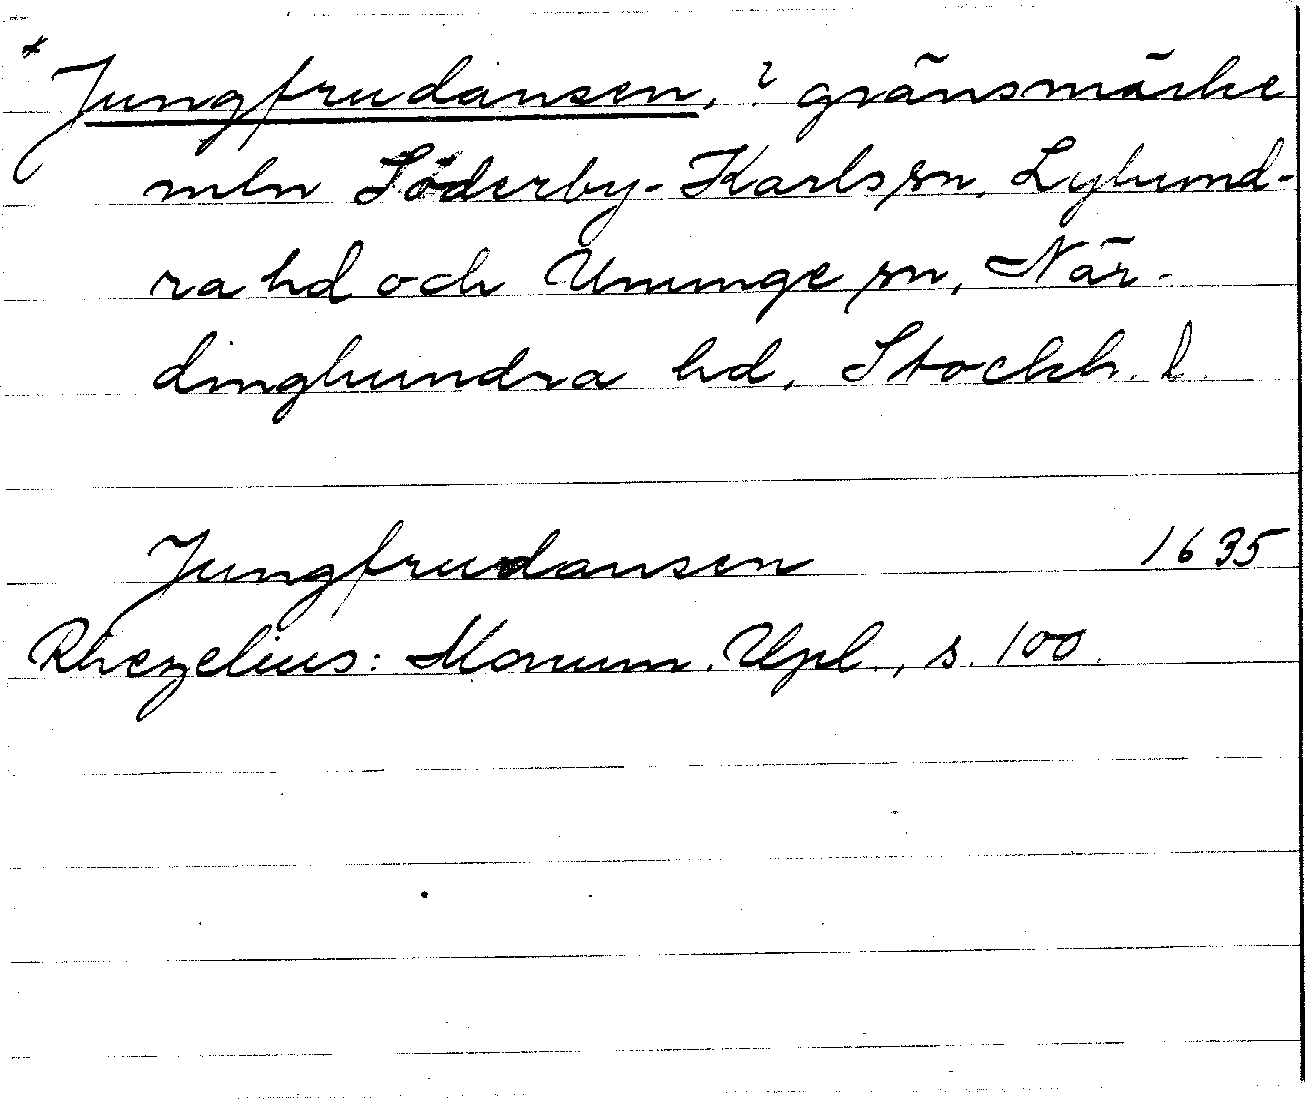 * Jungfrudansen, ? gränsmärke
mln Söderby-Karls sn, Lyhund-
ra hd och Ununge sn, När-
dinghundra hd, Stockh. l.
Jungfrudansen 1635
Rhezelius: Monum. Upl., s. 100.